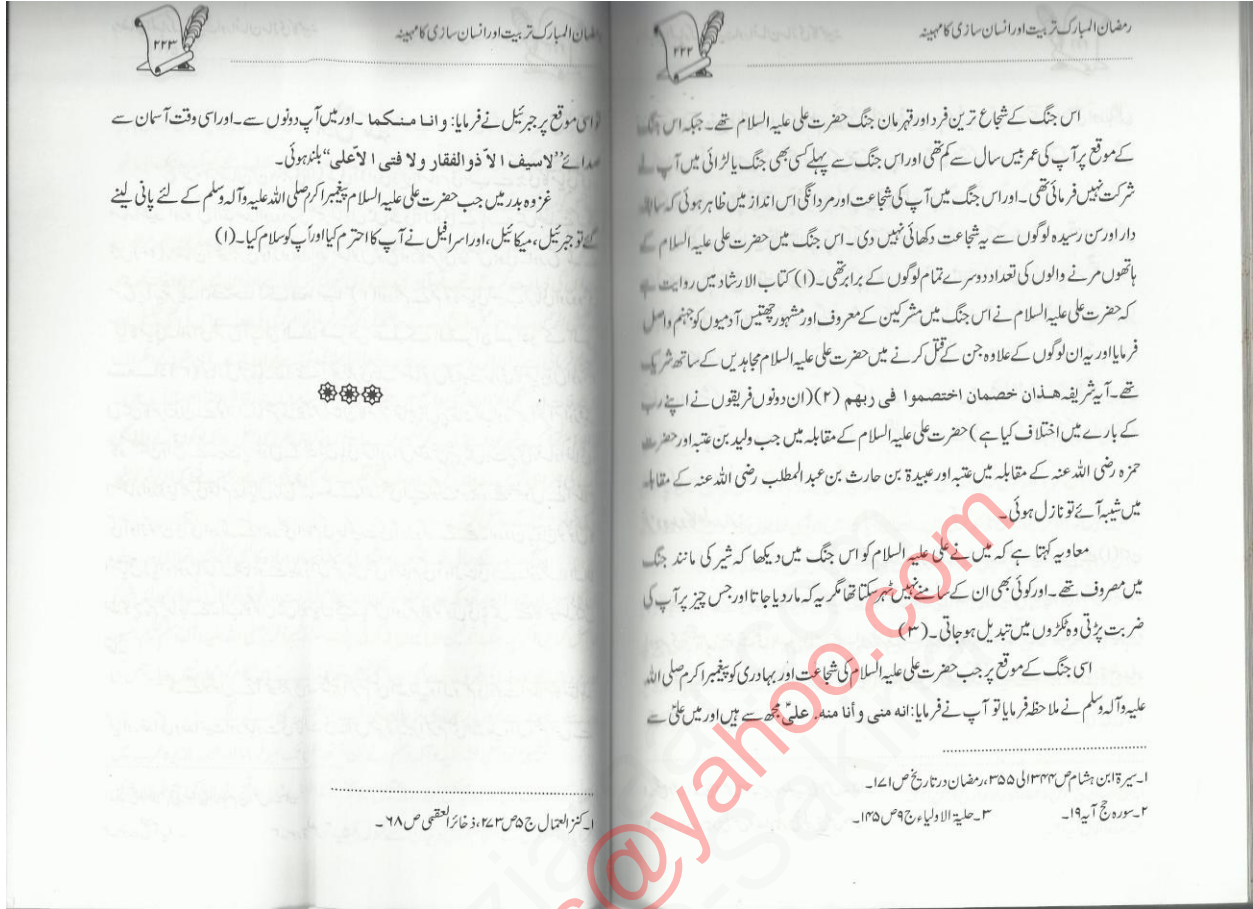 رمضان المبارک تربیت اور انسان سازی کا مہینہ
۲۲۲
اس جنگ کے شجاع ترین فرد اور قہرمان جنگ حضرت علی علیہ السلام تھے۔ جبکہ اس جنگ
کے موقع پر آپ کی عمر بیس سال سے کم تھی اور اس جنگ سے پہلے کسی بھی جنگ یا لڑائی میں آپ نے
شرکت نہیں فرمائی تھی۔ اور اس جنگ میں آپ کی شجاعت اور مردانگی اس انداز میں ظاہر ہوئی کہ سابقہ
دار اور سن رسیدہ لوگوں سے یہ شجاعت دکھائی نہیں دی۔ اس جنگ میں حضرت علی علیہ السلام کے
ہاتھوں مرنے والوں کی تعداد دوسرے تمام لوگوں کے برابر تھی۔ (۱) کتاب الارشاد میں روایت ہے
کہ حضرت علی علیہ السلام نے اس جنگ میں مشرکین کے معروف اور مشہور چھتیس آدمیوں کو جہنم واصل
فرمایا اور یہ ان لوگوں کے علاوہ جن کے قتل کرنے میں حضرت علی علیہ السلام مجاہدین کے ساتھ شریک
تھے۔ آیہ شریفہ هذان خصمان اختصموا فی ربهم (۲) (ان دونوں فریقوں نے اپنے رب
کے بارے میں اختلاف کیا ہے) حضرت علی علیہ السلام کے مقابلہ میں جب ولید بن عتبہ اور حضرت
حمزہ رضی اللہ عنہ کے مقابلہ میں عتبہ اور عبیدۃ بن حارث بن عبد المطلب رضی اللہ عنہ کے مقابلہ
میں شیبہ آئے تو نازل ہوئی۔
معاویہ کہتا ہے کہ میں نے علی علیہ السلام کو اس جنگ میں دیکھا کہ شیر کی مانند جنگ
میں مصروف تھے۔ اور کوئی بھی ان کے سامنے نہیں ٹہر سکتا تھا مگر یہ کہ مار دیا جاتا اور جس چیز پر آپ کی
ضربت پڑتی وہ ٹکڑوں میں تبدیل ہو جاتی۔ (۳)
اسی جنگ کے موقع پر جب حضرت علی علیہ السلام کی شجاعت اور بہادری کو پیغمبر اکرم صلی اللہ
علیہ وآلہ وسلم نے ملاحظہ فرمایا تو آپ نے فرمایا: انه منی و أنا منه. علیؑ مجھ سے ہیں اور میں علیؑ سے
۱۔ سیرۃ ابن ہشام ص ۳۴۴ الی ۳۵۵، رمضان در تاریخ ص ۱۷۱۔
۲۔ سورہ حج آیہ ۱۹۔ ۳۔ حلیۃ الاولیاء ج ۹ ص ۱۴۵۔
رمضان المبارک تربیت اور انسان سازی کا مہینہ
۲۲۳
تو اسی موقع پر جبرئیل نے فرمایا: و انا منکما۔ اور میں آپ دونوں سے۔ اور اسی وقت آسمان سے
صدائے ”لا سیف الاّ ذو الفقار ولا فتی الاّ علی“ بلند ہوئی۔
غزوہ بدر میں جب حضرت علی علیہ السلام پیغمبر اکرم صلی اللہ علیہ وآلہ وسلم کے لئے پانی لینے
گئے تو جبرئیل، میکائیل، اور اسرافیل نے آپ کا احترم کیا اور آپ کو سلام کیا۔ (۱)
۱۔ کنز العمال ج ۵ ص ۲۷۳، ذخائر العقبی ص ۶۸۔
@yahoo.com